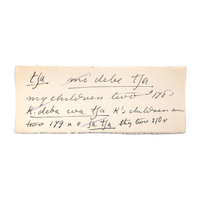 tʃa mi debe tʃa
my children two 175
K. debe wa tʃa K's children are
two 179 no tʃa thy two 210v